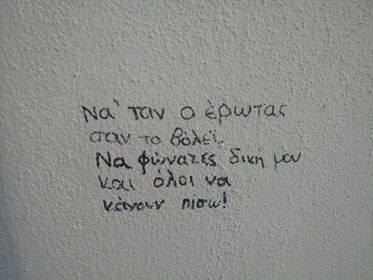 Να' ταν ο έρωτας
σαν το βόλεϊ.
Να φώναζες δική μου
και όλοι να
κάνουν πίσω!